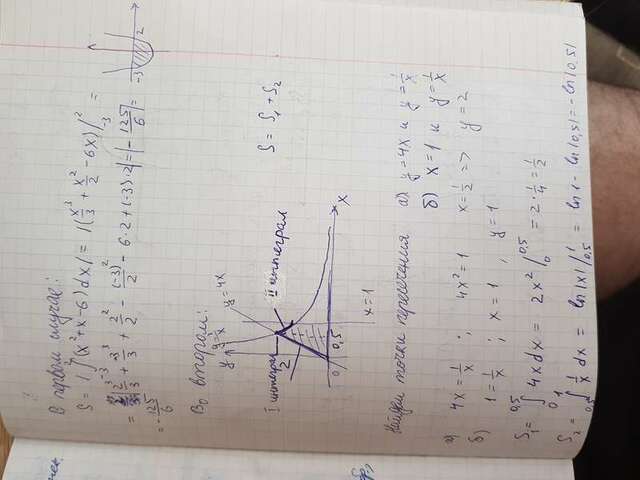 В первом случае:
S = | ∫₋₃² (x² + x - 6) dx | = | (x³/3 + x²/2 - 6x) |₋₃² =
= | 2³/3 + 3³/3 + 2²/2 - (-3)²/2 - 6·2 + (-3)·2 | = | - 125/6 | =
= - 125/6
-3 2
Во втором:
y y = 1/x y = 4x
I интеграл II интеграл
2
S = S₁ + S₂
0 0,5 x
x = 1
Найдем точки пересечения а) y = 4x и y = 1/x
б) x = 1 и y = 1/x
а) 4x = 1/x ; 4x² = 1 x = 1/2 => y = 2
б) 1 = 1/x ; x = 1 , y = 1
S₁ = ∫₀^0,5 4x dx = 2x² |₀^0,5 = 2 · 1/4 = 1/2
S₂ = ∫₀,₅¹ 1/x dx = ln|x| |₀,₅¹ = ln 1 - ln|0,5| = -ln|0,5|